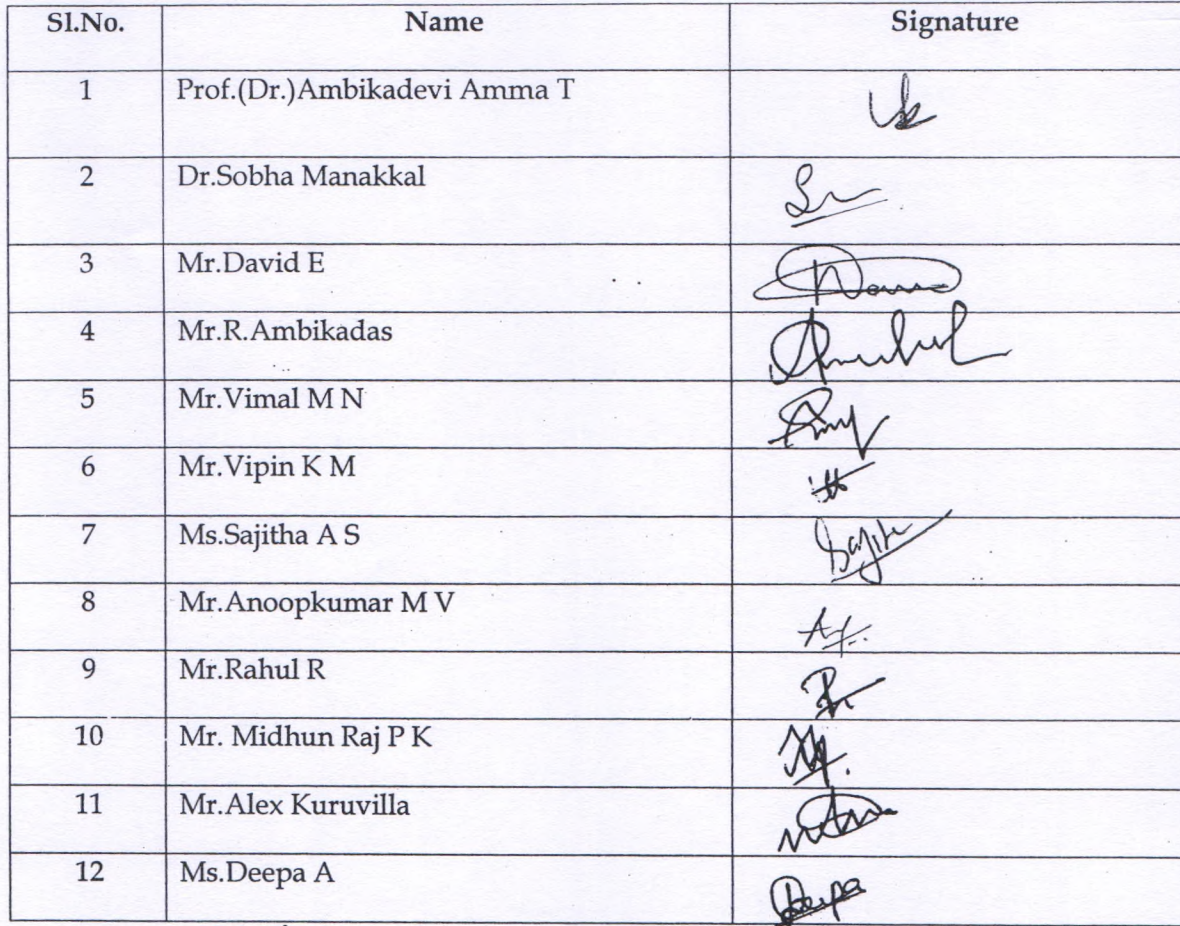 Sl.No. Name Signature
1 Prof.(Dr.)Ambikadevi Amma T
2 Dr.Sobha Manakkal
3 Mr.David E
4 Mr.R.Ambikadas
5 Mr.Vimal M N
6 Mr.Vipin K M
7 Ms.Sajitha A S Sajitha
8 Mr.Anoopkumar M V
9 Mr.Rahul R
10 Mr. Midhun Raj P K
11 Mr.Alex Kuruvilla
12 Ms.Deepa A Deepa